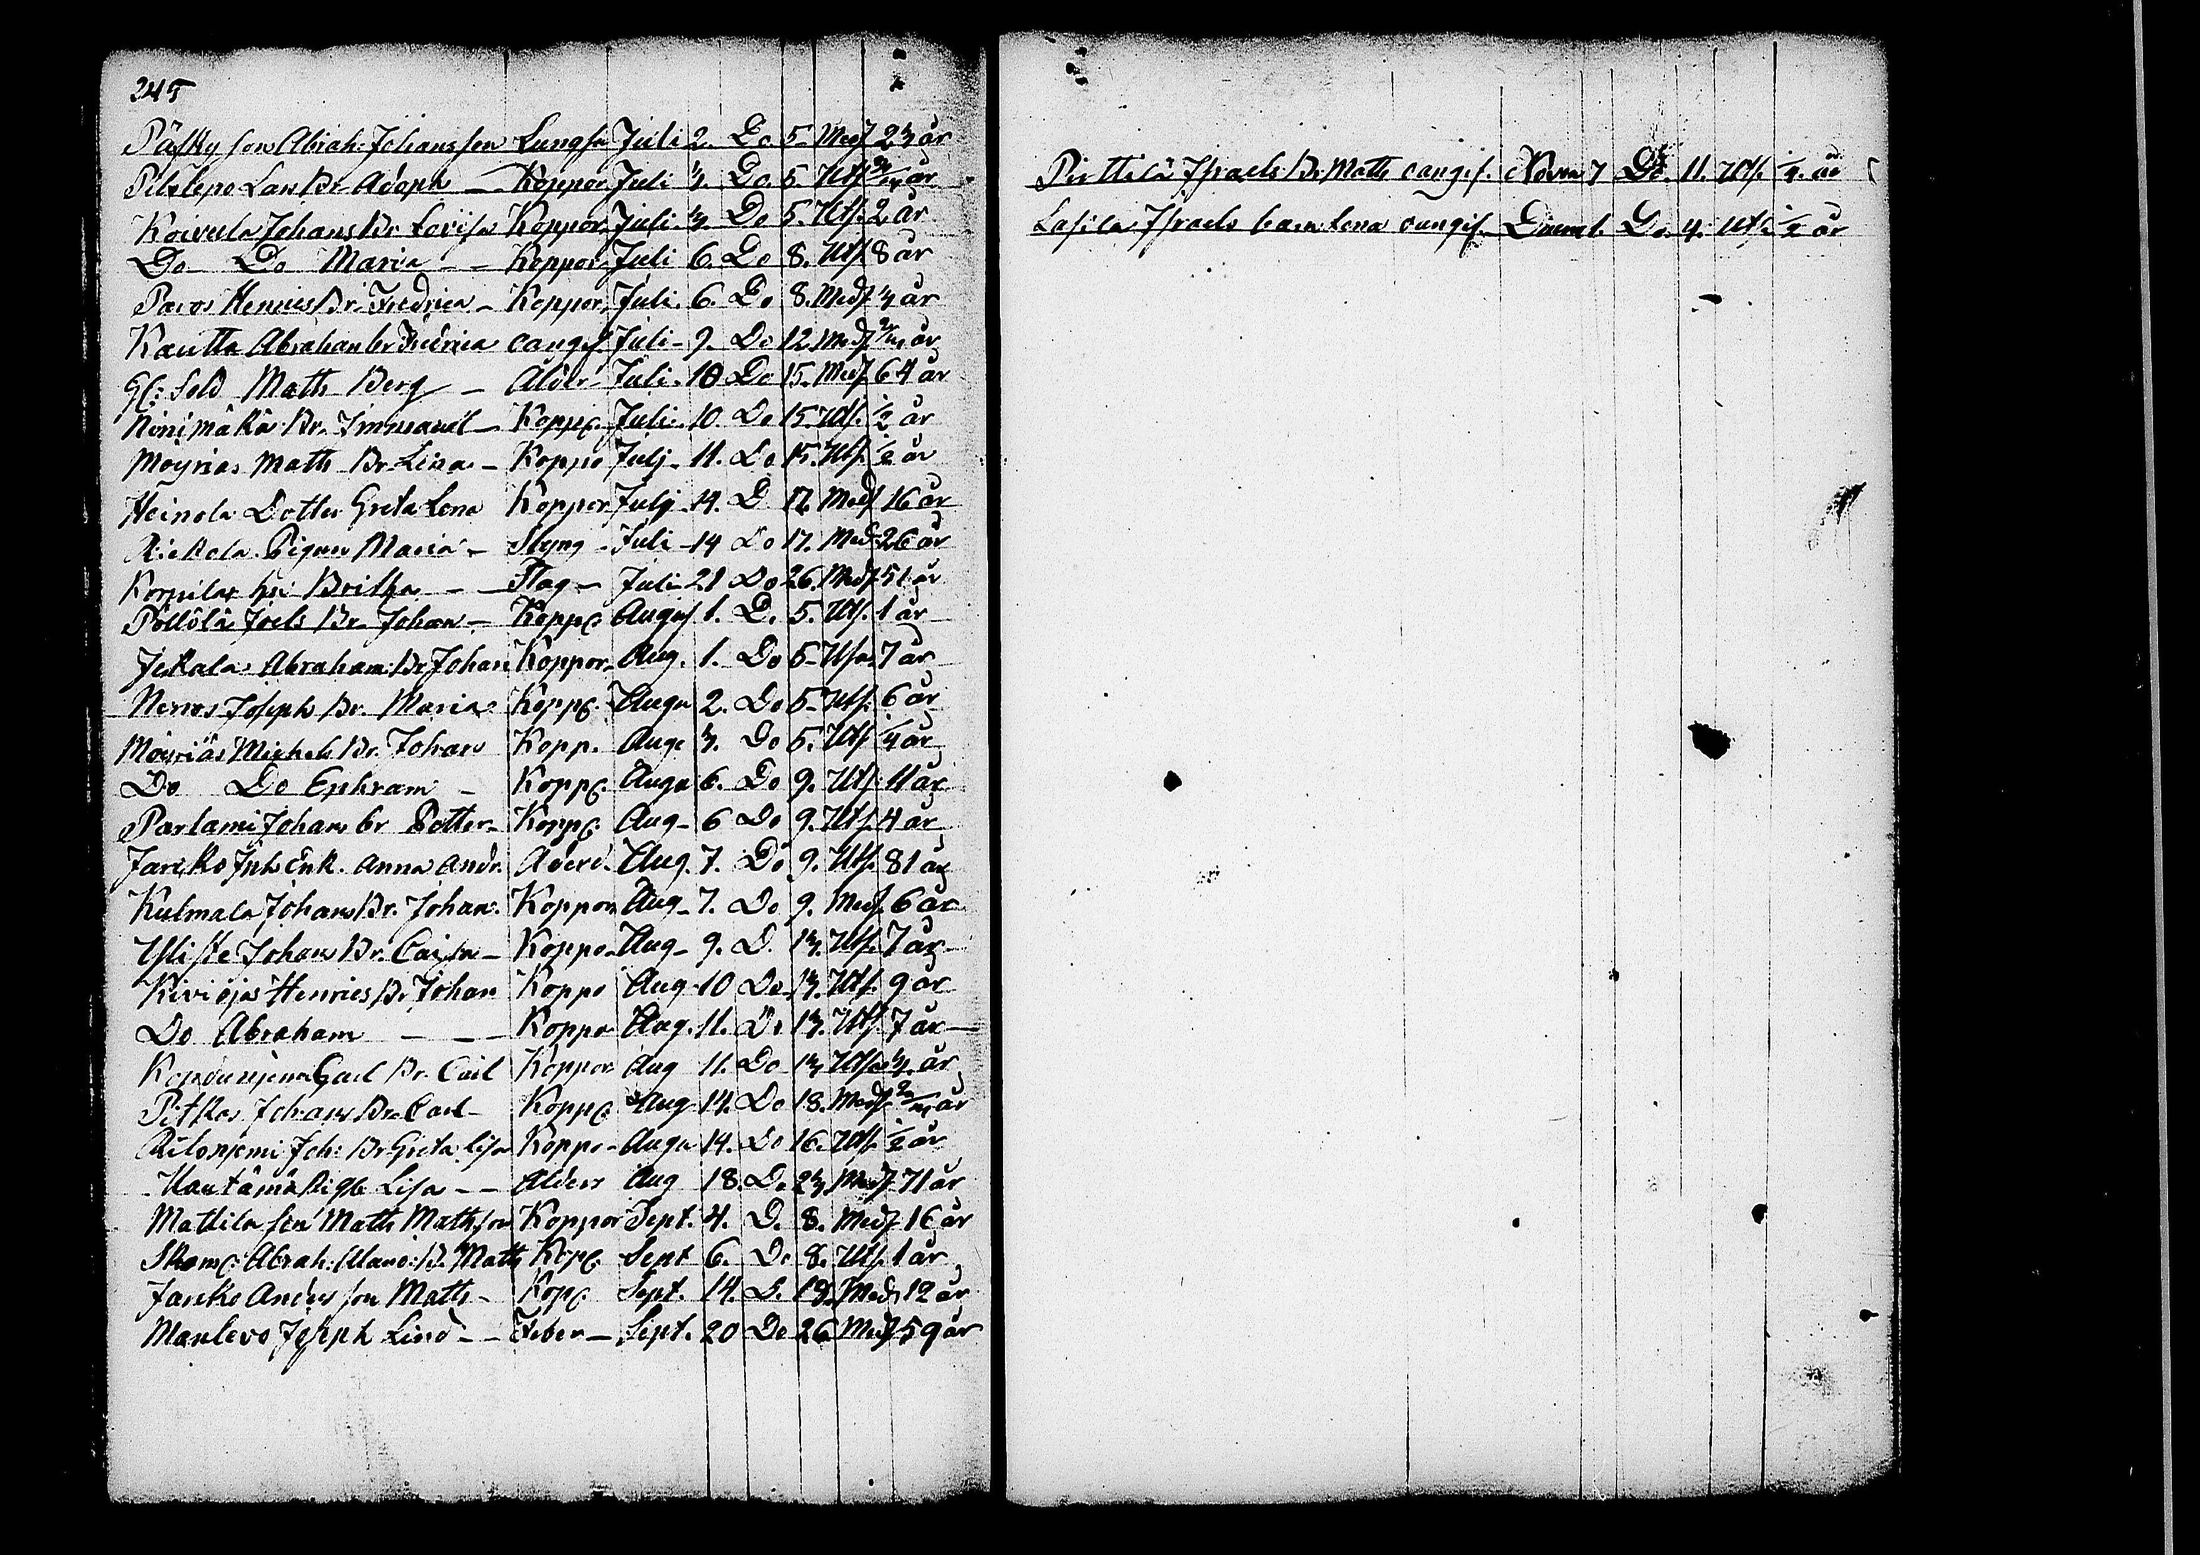 245
Påsky son Abrah: Johansson Lungso Juli 2. Do 5. Med 23 år
Lars Br. Adoph Koppor Juli 3. Do. 5. Utf 3/4 år
Koivula Johans Br. Lovisa Koppor Juli 3. Do 5. Utf. 2 år
Do Do Maria Koppor Juli 6. Do 8. Utf 8 år
Pavos Henrics Br. Fredrica Koppor Juli. 6. Do 8. Medf 3 år
Kautta Abraham br Fredrica oangif. Juli 9. Do 12. Medf år
Gl: Sold Matts Berg Ålder Juli. 10 Do 15. Medf 64 år
Ninimäkä Br. Immanuel Koppo Juli 10. Do 15. Utf. 1/2 år
Möyrias Matts Br. Lina Koppo Julj 11. Do 15. Utf. 1/2 år
Heinola Dotter Greta Lena Koppor Julj 14. D 17. Medf 16 år
Pigan Maria Styng Juli 14 Do 17. Med 26 år
Korpilas hu Britha Slag Juli 21 Do 26. Medf 51 år
Pöllölä Joels Br. Johan Koppo August 1. D. 5. Utf. 1 år
Jckala Abraham Br Johan Koppor Aug. 1. Do 5. Utf 7 år
Joseph Br. Maria Koppo Augu 2. Do 5. Utf. 6 år
Möyriäs Michels Br. Johan Kopp. Augu 3. Do 5. Utf 1/4 år
Do Do Ephram Koppo Augu 6. Do 9. Utf. 11 år
Parlami Johans br Petter Koppo Aug 6 Do 9. Utf. 4 år
Jaricko Inh Enk. Anna Andr. Åderd. Aug. 7. Do 9. Utf. 81 år
Kulmala Johans Br. Johan. Koppor Aug. 7. Do 9. Medf. 6 år
Johans Br. Caisa Koppo Aug 9. D. 13. Utf. 7 år
Kiviojas Henrics Br Johan Koppo Aug 10 Do 13. Utf. 9 år
Do Abraham Koppo Aug. 11. Do 13. Utf. 7 år
Carl Br. Carl Koppor Aug 11. Do 13 Utf 3 år
Pitkas Johans Br. Carl Koppo Aug 14. Do 18. Medf. 2/m år
Joh: Br Greta Lisa Koppo Augu 14. Do 16. Utf. 1/2 år
Hautamä Lisa Ålders Aug 18. Do 23. Medf 71 år
Mattila son Matts Mathson Koppor Sept. 4. D. 8. Medf 16 år
Skom: Abrah: B. Matts Kopp Sept 6. Do 8. Utf. 1 år
Jaricko Anders son Matts Kopp Sept. 14. D. 19. Med 12 år
Manlevo Joseph Lind Feber Sept. 20 Do 26 Medf 59 år
Pirttilä Israels Br. Matts oangif. Novem 7 Do. 11. Utf. 1/4. år
Lasila Israels barn Lena oangif. Decem 1. Do. 4. Utf. 1/2 år